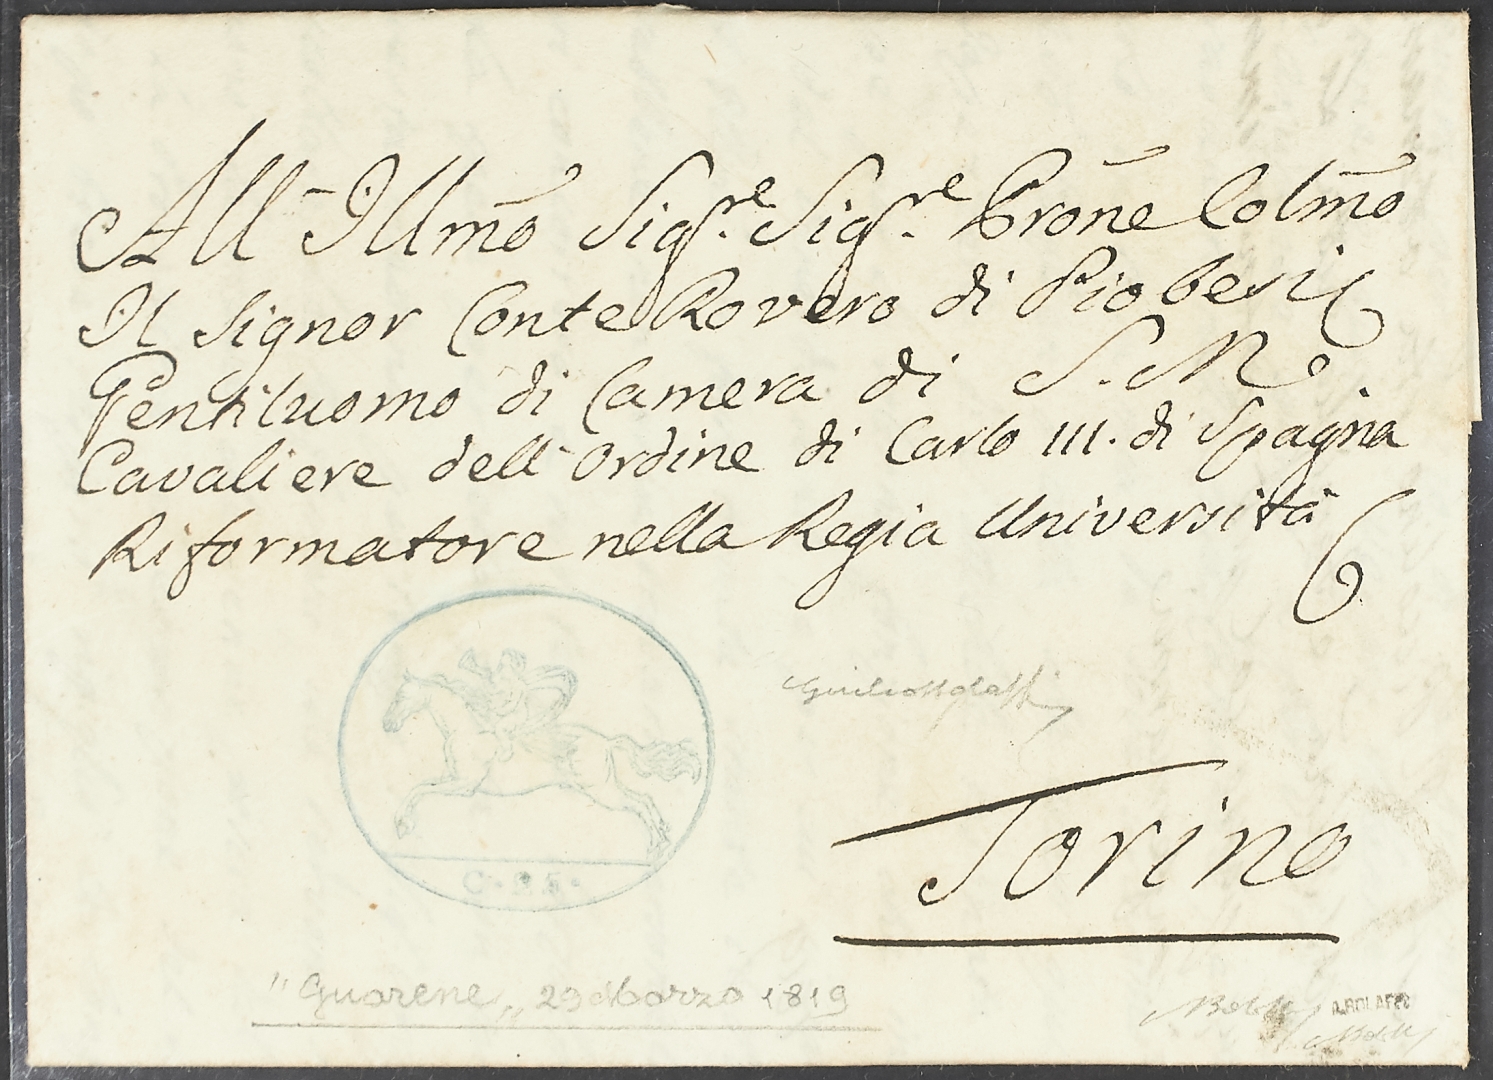 All' Illmõ Sigr.e Sigr.e Prõne Colmõ
Il Signor Conte Rovero di Piobesi
Gentiluomo di Camera di S. M.
Cavaliere dell' Ordine di Carlo III. di Spagna
Riformatore nella Regia Università
C. 25.
Torino
"Guarene„ 29 Marzo 1819
A. BOLAFFI